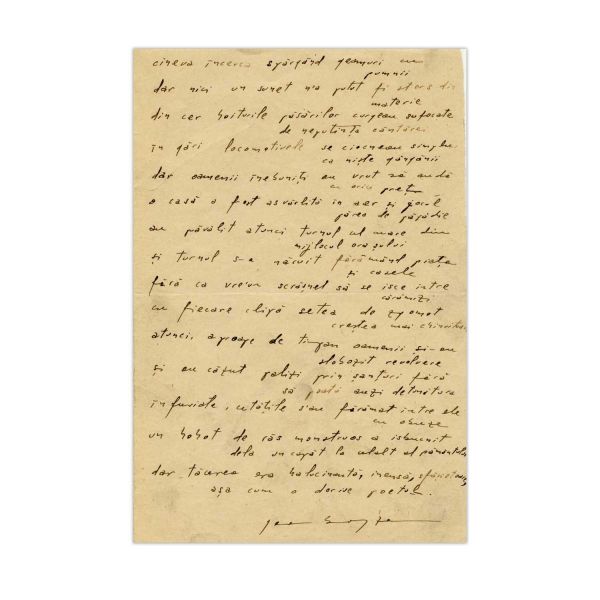 cineva încerca spărgând geamuri cu
pumnii
dar nici un sunet n'a putut fi stors din
materie
din cer hoiturile păsărilor curgeau sufocate
de neputința cântării
în gări locomotivele se ciocneau
ca niște gângănii
dar oamenii înebuniți au vrut să audă
cu orice preț
o casă a fost asvârlită în aer și jocul
părea de păpădie
au năvălit atunci turnul cel mare din
mijlocul orașului
și turnul s-a năruit fărâmând piața
și casele
fără ca vre'un scrâșnet să se isce între
cărămizi
cu fiecare clipă setea de zgomot
creștea mai
atunci, aproape de oamenii și-au
slobozit revolvere
și au căzut palizi prin șanțuri fără
să poată auzi detunătura
înfuriate, cetățile s'au fărâmat între ele
cu obuze
un hohot de râs monstruos a isbucnit
dela un capăt la celalt al pământului
dar tăcerea era halucinantă, imensă,
așa cum o dorise poetul.